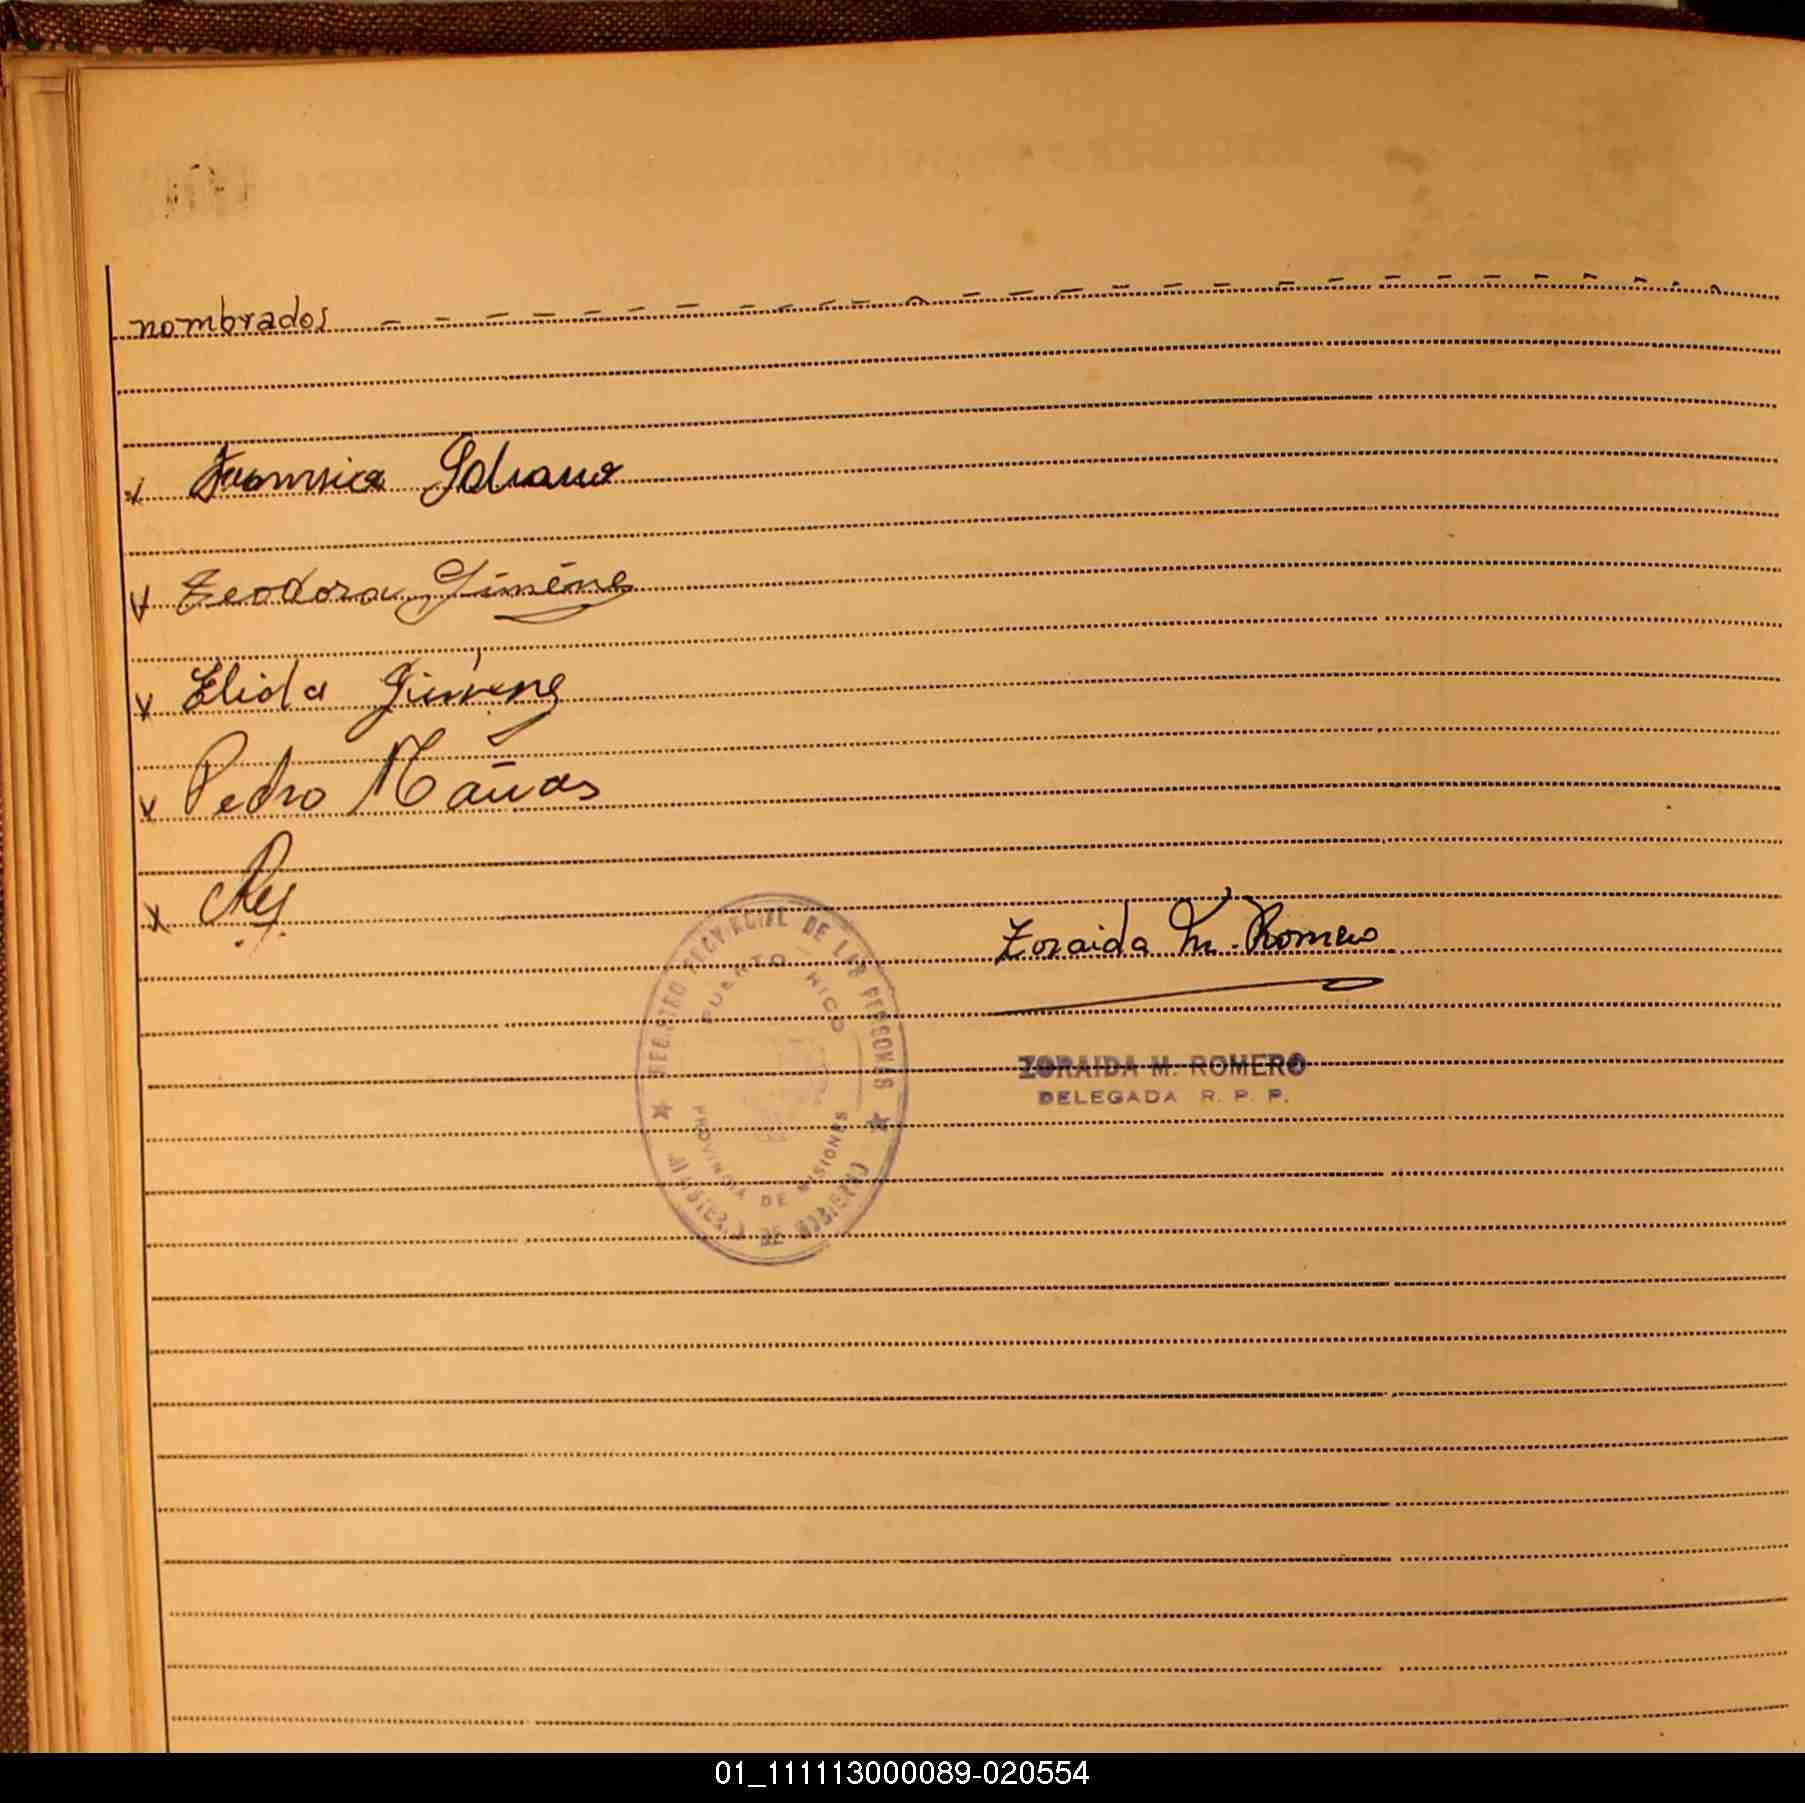 nombrados
Teodora Giménez
Elida Giménez
Pedro Mañas
Zoraida M. Romero
REGISTRO PROVINCIAL DE LAS PERSONAS
PUERTO RICO
PROVINCIA DE MISIONES
MINISTERIO DE GOBIERNO
ZORAIDA M. ROMERO
DELEGADA R. P. P.
01_111113000089-020554